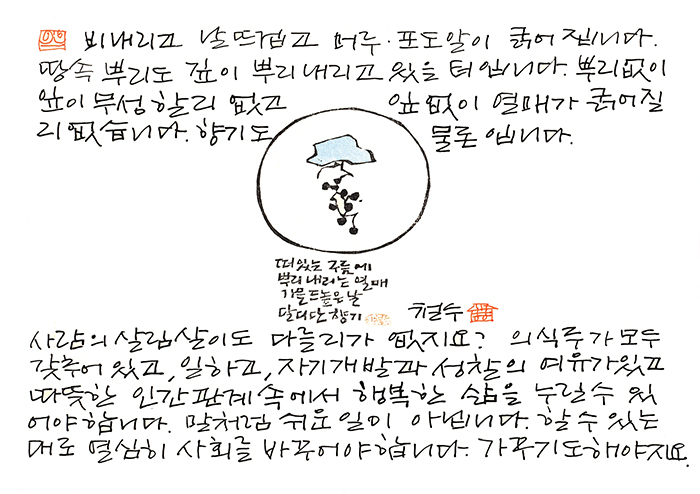 비내리고 날 뜨겁고 머루·포도알이 굵어집니다.
땅속 뿌리도 깊이 뿌리내리고 있을 터입니다. 뿌리없이
잎이 무성할리 없고 잎 없이 열매가 굵어질
리 없습니다. 향기도 물론입니다.
떠있는 구름에
뿌리 내리는 열매
가을 드높은 날
달디단 향기
철수
사람의 살림살이도 다를리가 없지요? 의식주가 모두
갖추어 있고, 일하고, 자기개발과 성찰의 여유가 있고
따뜻한 인간관계 속에서 행복한 삶을 누릴 수 있
어야 합니다. 말처럼 쉬운 일이 아닙니다. 할 수 있는
대로 열심히 사회를 바꾸어야 합니다. 가꾸기도 해야지요.